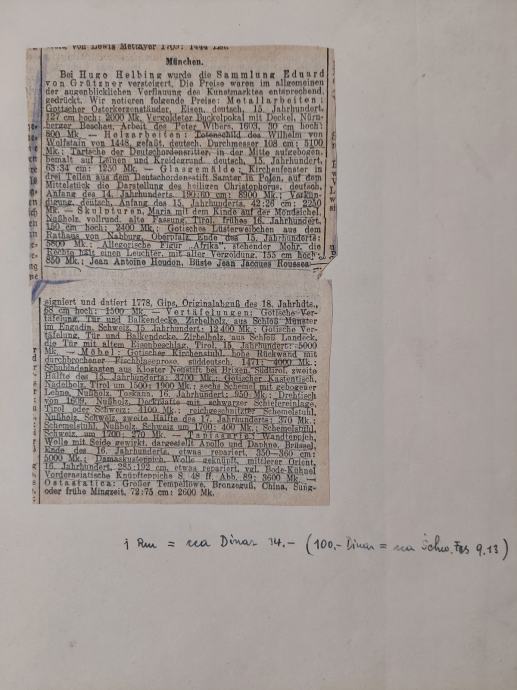 von Lewis Mettayer 1709: 1444 Lstr.
München.
Bei Hugo Helbing wurde die Sammlung Eduard
von Grützner versteigert. Die Preise waren im allgemeinen
der augenblicklichen Verflauung des Kunstmarktes entsprechend,
gedrückt. Wir notieren folgende Preise: Metallarbeiten:
Gotischer Osterkerzenständer, Eisen, deutsch, 15. Jahrhundert,
127 cm hoch: 2000 Mk. Vergoldeter Buckelpokal mit Deckel, Nürn-
berger Beschau, Arbeit des Peter Wibers, 1603, 30 cm hoch:
800 Mk. — Holzarbeiten: Totenschild des Wilhelm von
Wolfstain von 1448, gefaßt, deutsch, Durchmesser 108 cm: 5100
Mk.; Tartsche der Deutschordensritter, in der Mitte aufgebogen,
bemalt auf Leinen und Kreidegrund, deutsch, 15. Jahrhundert,
63:34 cm: 1250 Mk. — Glasgemälde: Kirchenfenster in
drei Teilen aus dem Deutschordensstift Samter in Polen, auf dem
Mittelstück die Darstellung des heiligen Christophorus, deutsch,
Anfang des 14. Jahrhunderts, 190:60 cm: 8900 Mk.; Verkün-
digung, deutsch, Anfang des 15. Jahrhunderts, 42:26 cm: 2250
Mk. — Skulpturen: Maria mit dem Kinde auf der Mondsichel,
Nußholz, vollrund, alte Fassung, Tirol, frühes 16. Jahrhundert,
150 cm hoch: 2400 Mk.; Gotisches Lüsterweibchen aus dem
Rathaus von Nabburg, Oberpfalz, Ende des 15. Jahrhunderts:
5800 Mk.; Allegorische Figur „Afrika“, stehender Mohr, die
Rechte hält einen Leuchter, mit alter Vergoldung, 153 cm hoch:
850 Mk.; Jean Antoine Houdon, Büste Jean Jacques Rousseau
signiert und datiert 1778, Gips, Originalabguß des 18. Jahrhdts.,
68 cm hoch: 1500 Mk. — Vertäfelungen: Gotische Ver-
täfelung, Tür und Balkendecke, Zirbelholz, aus Schloß Münster
im Engadin, Schweiz, 15. Jahrhundert: 12 400 Mk.; Gotische Ver-
täfelung, Tür und Balkendecke, Zirbelholz, aus Schloß Landeck,
die Tür mit altem Eisenbeschlag, Tirol, 15. Jahrhundert: 5000
Mk. — Möbel: Gotischer Kirchenstuhl, hohe Rückwand mit
durchbrochener Fischblasenrose, süddeutsch, 1471: 4000 Mk.;
Schubladenkasten aus Kloster Neustift bei Brixen, Südtirol, zweite
Hälfte des 15. Jahrhunderts: 3700 Mk.; Gotischer Kastentisch,
Nadelholz, Tirol um 1500: 1900 Mk.; sechs Schemel mit gebogener
Lehne, Nußholz, Toskana, 16. Jahrhundert: 950 Mk.; Drehtisch
von 1609, Nußholz, Deckplatte mit schwarzer Schiefereinlage,
Tirol oder Schweiz: 4100 Mk.; reichgeschnitzter Schemelstuhl,
Nußholz, Schweiz, zweite Hälfte des 17. Jahrhunderts: 370 Mk.;
Schemelstuhl, Nußholz, Schweiz um 1700: 400 Mk.; Schemelstuhl,
Schweiz, um 1700: 270 Mk. — Tapisserie: Wandteppich,
Wolle mit Seide gewirkt, dargestellt Apollo und Daphne, Brüssel,
Ende des 16. Jahrhunderts, etwas repariert, 350—360 cm:
5000 Mk.; Damaskusteppich, Wolle geknüpft, mittlerer Orient,
16. Jahrhundert, 285:192 cm, etwas repariert, vgl. Bode-Kühnel
Vorderasiatische Knüpfteppiche S. 48 ff. Abb. 89: 3600 Mk. —
Ostasiatica: Großer Tempellöwe, Bronzeguß, China, Sung-
oder frühe Mingzeit, 72:75 cm: 2600 Mk.
1 Rm = cca Dinar 14.- (100.- Dinar = cca Schw. Frs 9.13)